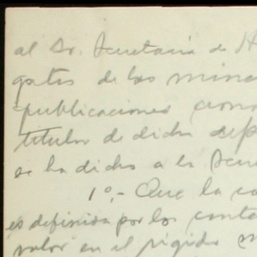 al Sr. Secretario de H
gatos de las mina
publicaciones
titulos de dicho
se ha dicho a la Secr
1º.- Que la
es definida por los conto
valor en el rigido m